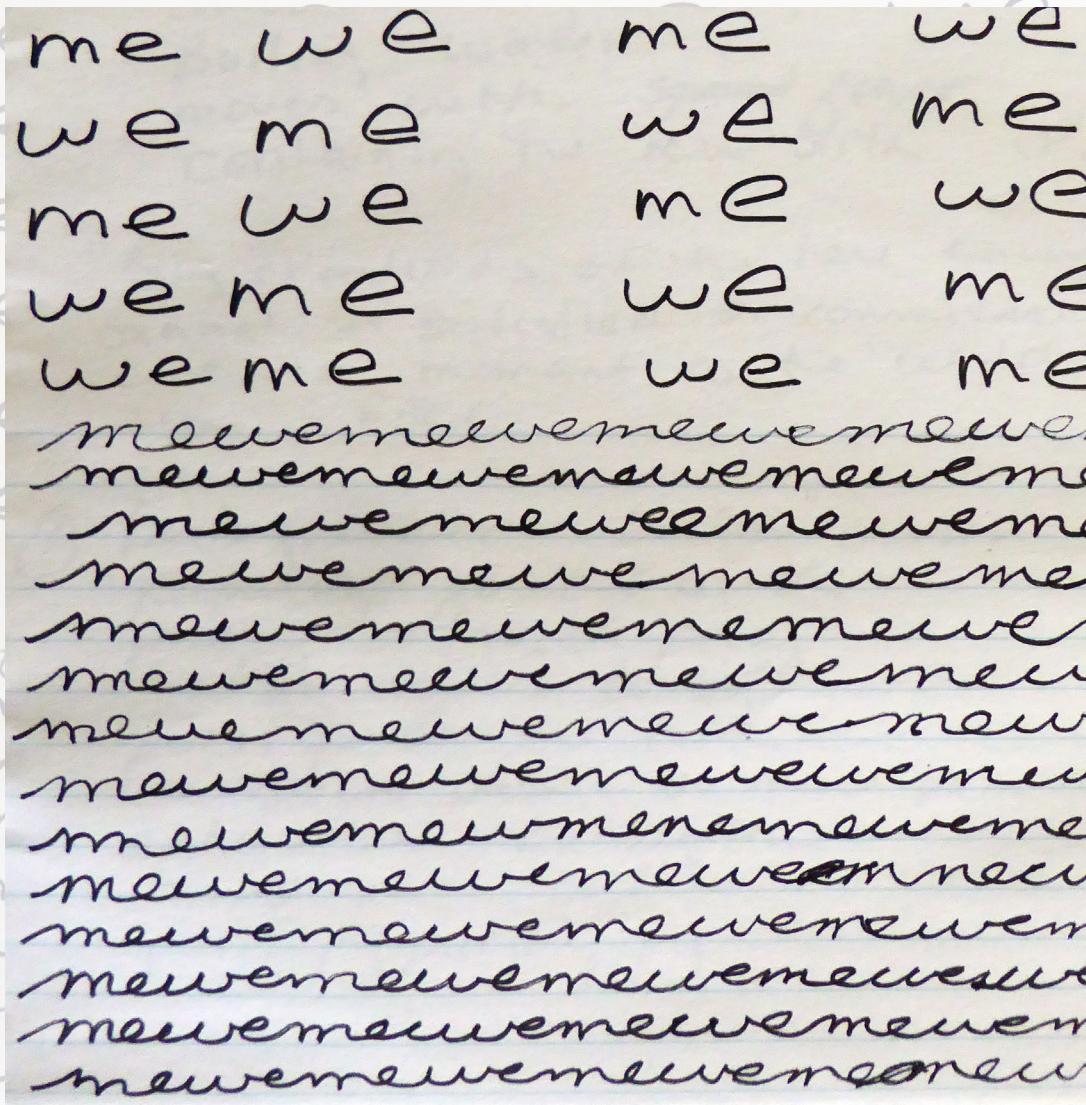 me we me we
we me we me
me we me we
we me we me
we me we me
mewemewemewemewe
mewemewemewemeweme
mewemeweemeweme
mewemewemeweme
mewemewememewe
mewemewemewemew
mewemewemewemew
mewemewemewewemew
mewemewmenemeweme
mewemewemewe
mewemewemewemewem
mewemewemewemewe
mewemewemewemewem
mewemewemeweme